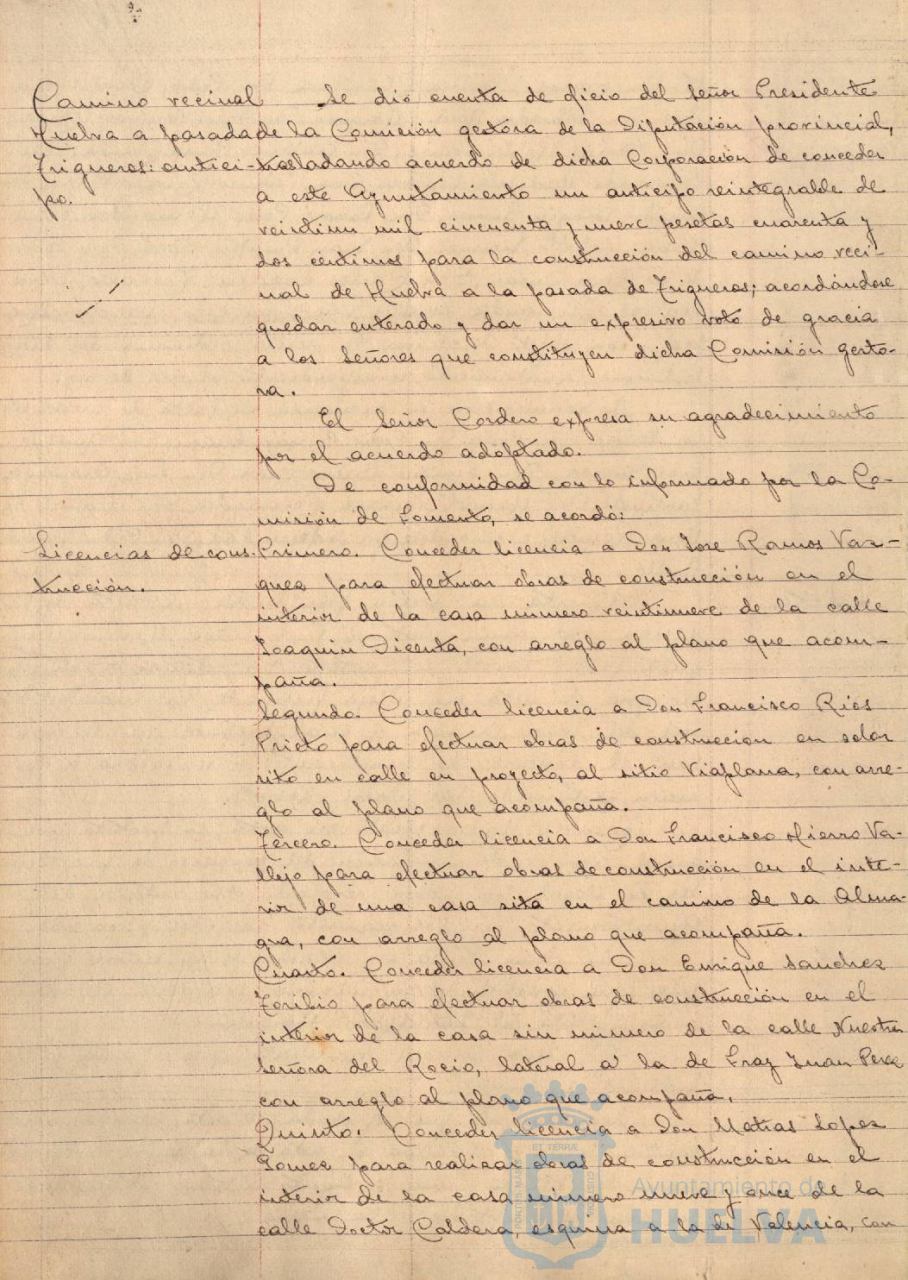 Camino vecinal
Huelva a pasada de
Trigueros: antici-
po.
Se dio cuenta de oficio del Señor Presidente
de la Comisión gestora de la Diputación provincial,
trasladando acuerdo de dicha Corporación de conceder
a este Ayuntamiento un anticipo reintegrable de
veintiun mil cincuenta y nueve pesetas cuarenta y
dos céntimos para la construcción del camino veci-
nal de Huelva a la pasada de Trigueros; acordándose
quedar enterado y dar un expresivo voto de gracia
a los Señores que constituyen dicha Comisión gesto-
ra.
El Señor Cordero expresa su agradecimiento
por el acuerdo adoptado.
De conformidad con lo informado por la Co-
misión de Fomento, se acordó:
Licencias de cons-
trucción.
Primero. Conceder licencia a Don Jose Ramos Vaz-
quez para efectuar obras de construcción en el
interior de la casa número veintinueve de la calle
Joaquin Dicenta, con arreglo al plano que acom-
paña.
Segundo. Conceder licencia a Don Francisco Rios
Prieto para efectuar obras de construccion en solar
sito en calle en proyecto, al sitio Viaplana, con arre-
glo al plano que acompaña.
Tercero. Conceder licencia a Don Francisco Hierro Va-
llejo para efectuar obras de construcción en el inte-
rior de una casa sita en el camino de la Alma-
gra, con arreglo al plano que acompaña.
Cuarto. Conceder licencia a Don Enrique Sanchez
Toribio para efectuar obras de construcción en el
interior de la casa sin número de la calle Nuestra
Señora del Rocio, lateral a la de Fray Juan Perez
con arreglo al plano que acompaña.
Quinto. Conceder licencia a Don Matias Lopez
Gomez para realizar obras de construcción en el
interior de la casa número nueve y once de la
calle Doctor Caldera, esquina a la de Valencia, con
Ayuntamiento de
HUELVA